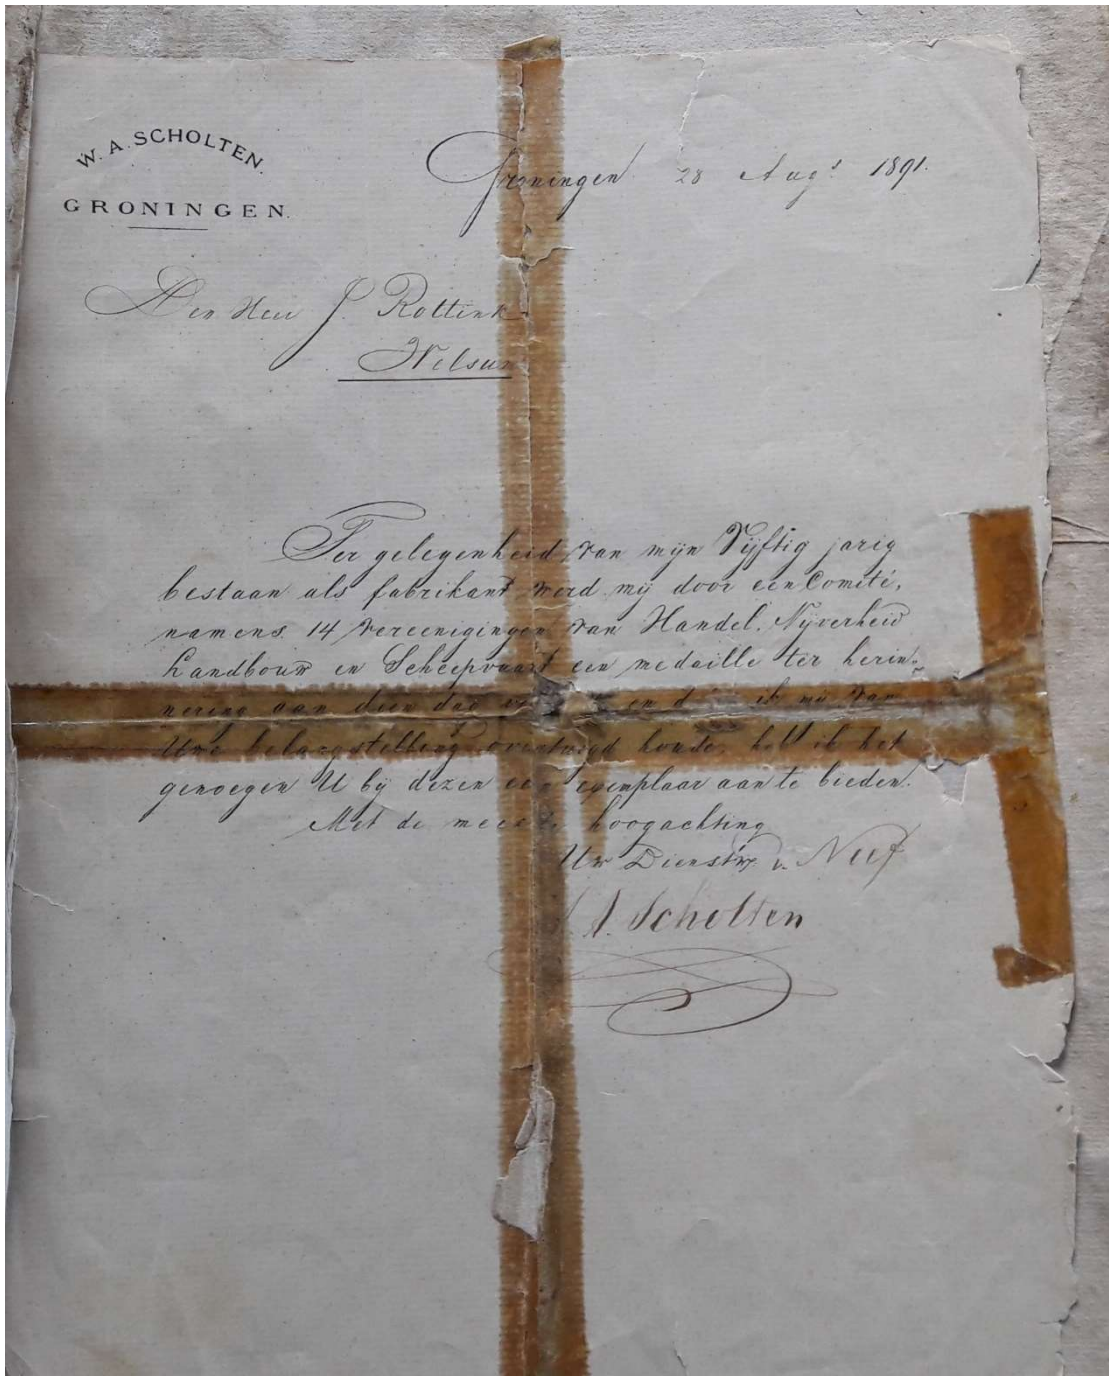 W. A. SCHOLTEN.
GRONINGEN.
Groningen 28 Augs 1891.
Den Heer J. Rottink
Ter gelegenheid van mijn Vijftig jarig
bestaan als fabrikant werd mij door een Comité,
namens 14 vereenigingen van Handel, Nijverheid
Landbouw en Scheepvaart een medaille ter herin-
nering aan dien dag en ik mij van
Uwe belangstelling overtuigd houde, heb ik het
genoegen U bij dezen een exemplaar aan te bieden.
Met de meeste hoogachting
Uw Dienstw. v. Neef
A. Scholten